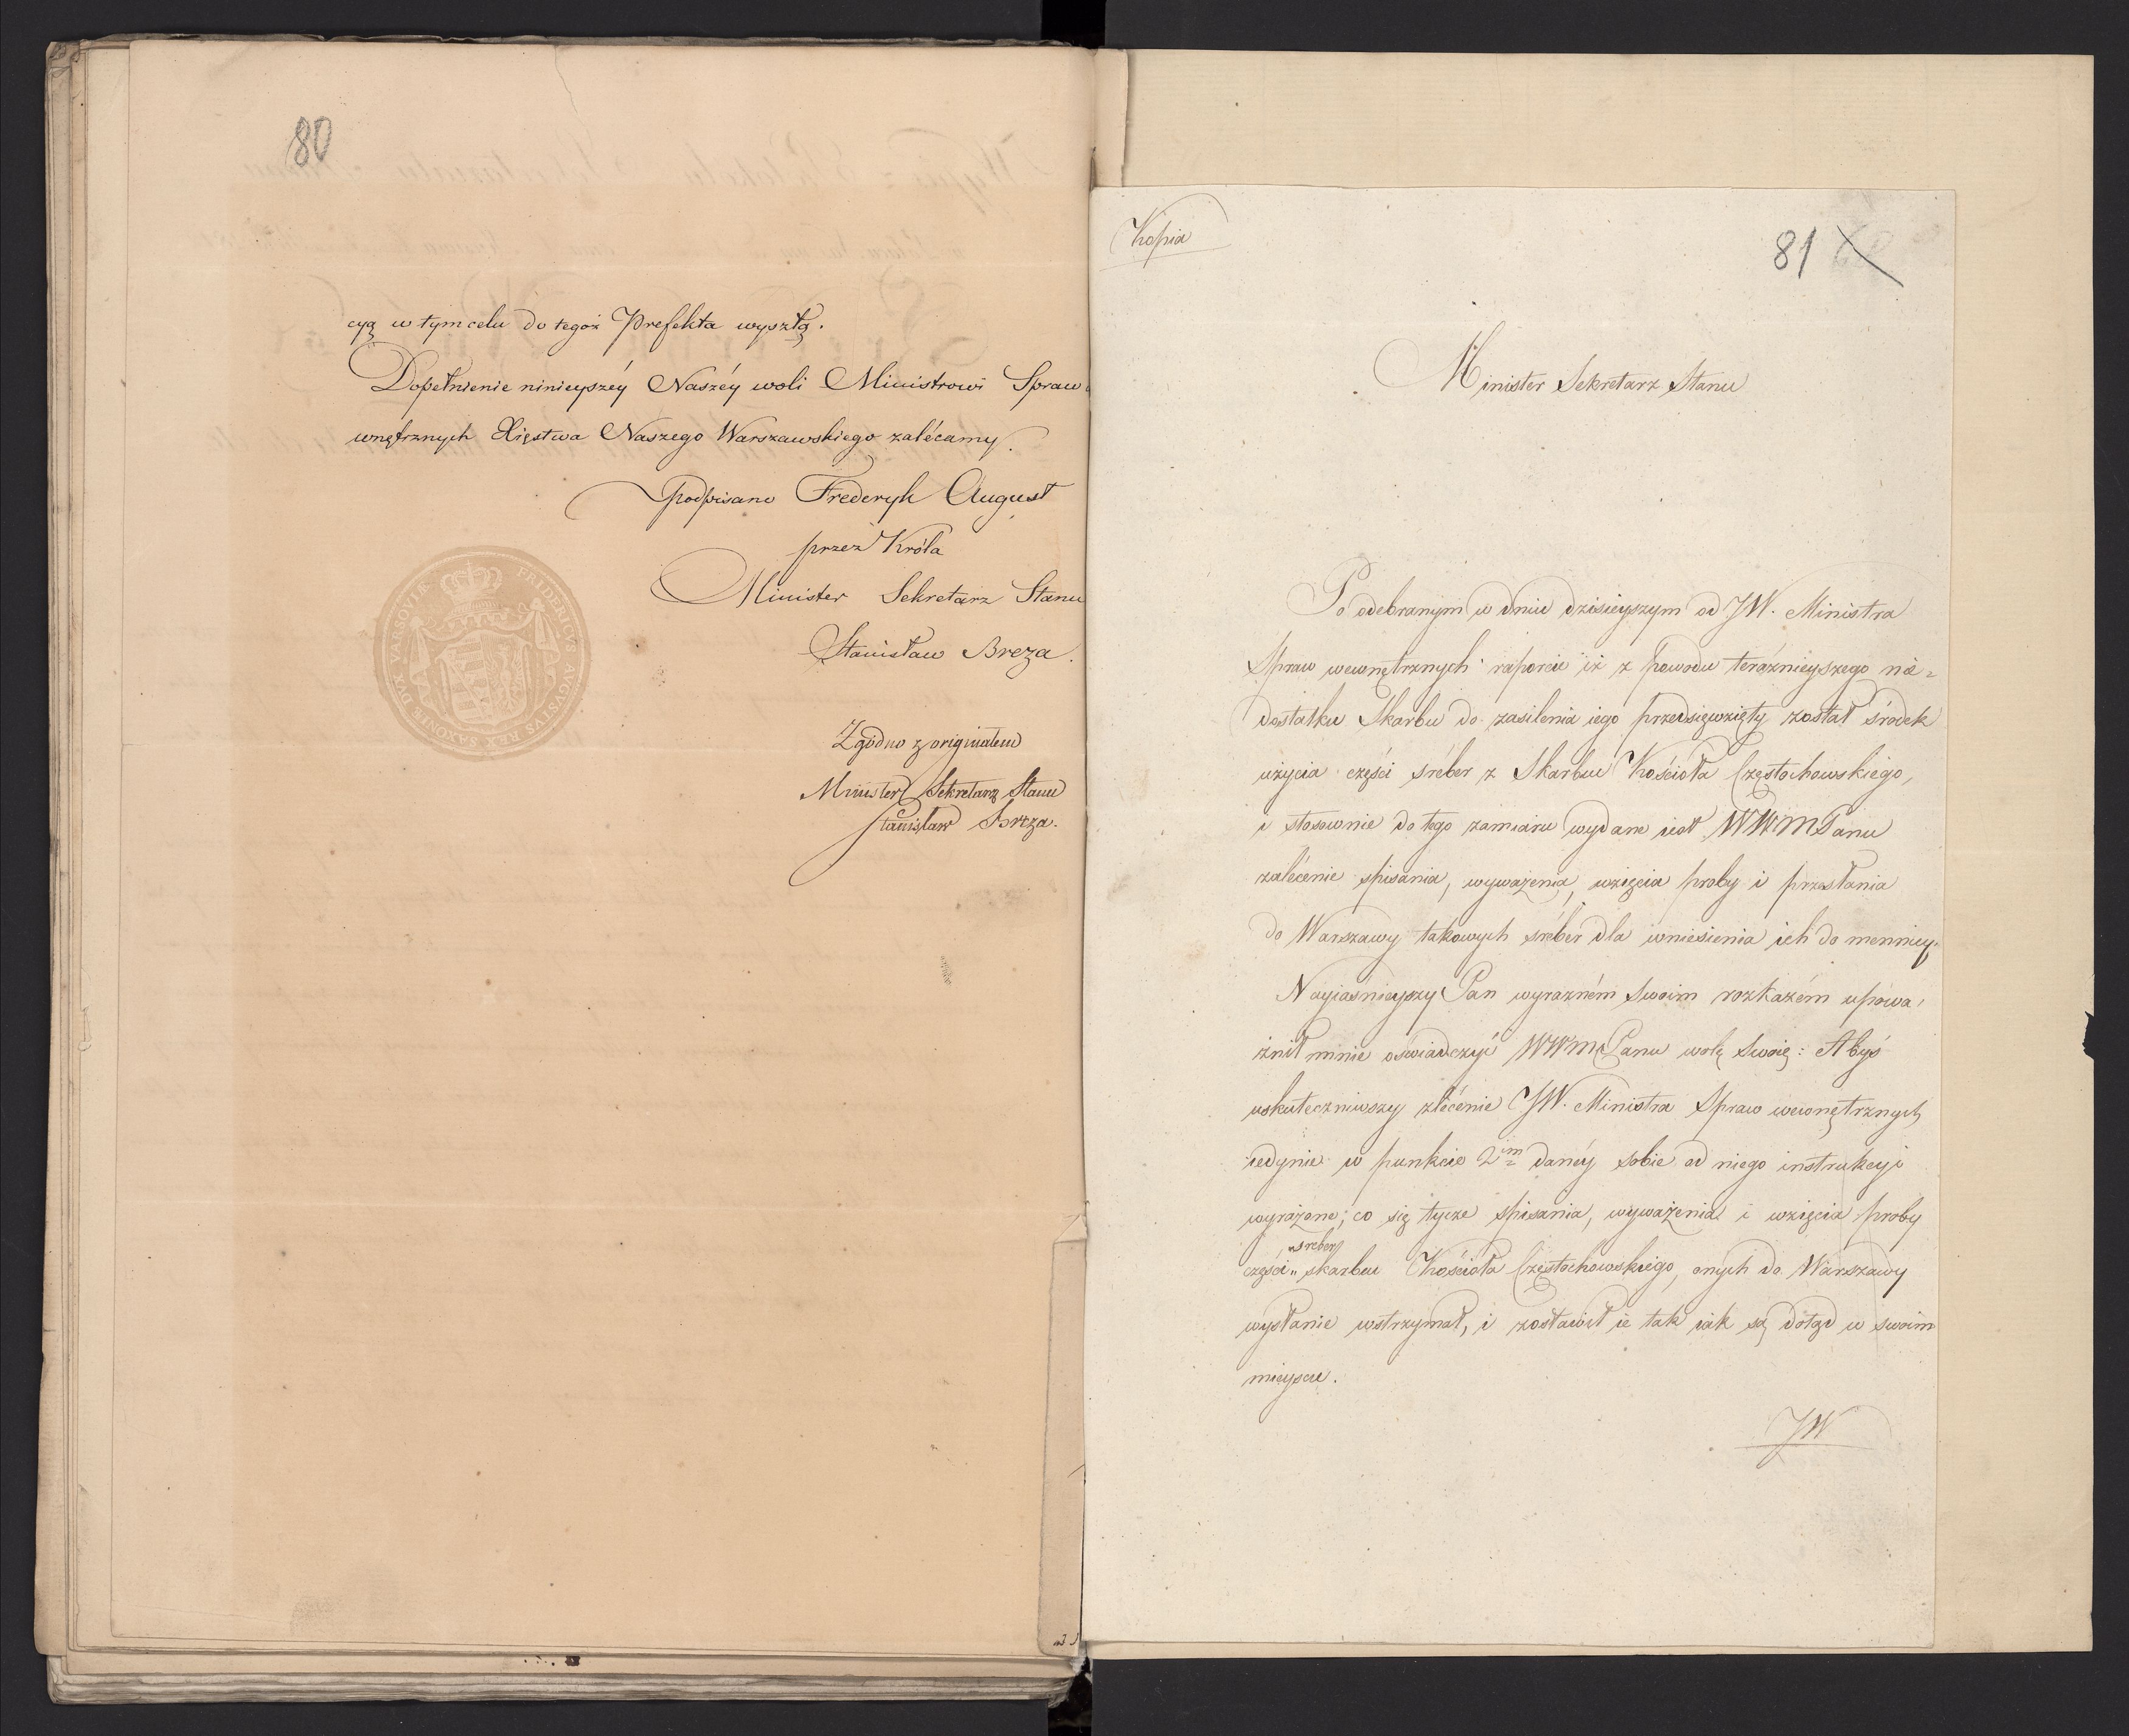 80
cyą w tym celu do tegoż Prefekta wyszłą.
Dopełnienie ninieyszéy Naszéy woli Ministrowi Spraw
wnętrznych Xięstwa Naszego Warszawskiego zalécamy.
podpisano Frederyk August
przez Króla
Minister Sekretarz Stanu
Stanisław Breza.
FRIDERICVS AVGVSTVS REX SAXONIÆ DVX VARSOVIÆ
Zgodno z originałem
Minister Sekretarz Stanu
Stanisław Breza.
Kopia
81
Minister Sekretarz Stanu
Po odebranym w dniu dzisieyszym od JW. Ministra
Spraw wewnętrznych raporcie iż z powodu teraźnieyszego nie=
dostatku Skarbu do zasilenia iego przedsięwzięty został środek
użycia części śreber z Skarbu Kościoła Częstochowskiego,
i stosownie do tego zamiaru wydane iest WWMPanu
zalécenie spisania, wyważenia, wzięcia proby i przesłania
do Warszawy takowych śréber dla wniesienia ich do mennicy.
Nayiaśnieyszy Pan wyraźném Swoim rozkazém upowa,
żnił mnie oświadczyć WWMPanu wolę Swoię: Abyś
uskuteczniwszy zlécenie JW. Ministra Spraw wewnętrznych
iedynie w punkcie 2im danéy sobie od niego instrukcyi
wyrażone; co się tycze spisania, wyważenia i wzięcia proby
"śreber
części" skarbu Kościoła Częstochowskiego, onych do Warszawy
wysłanie wstrzymał, i zostawił ie tak iak są dotąd w swoim
mieyscu.
JW